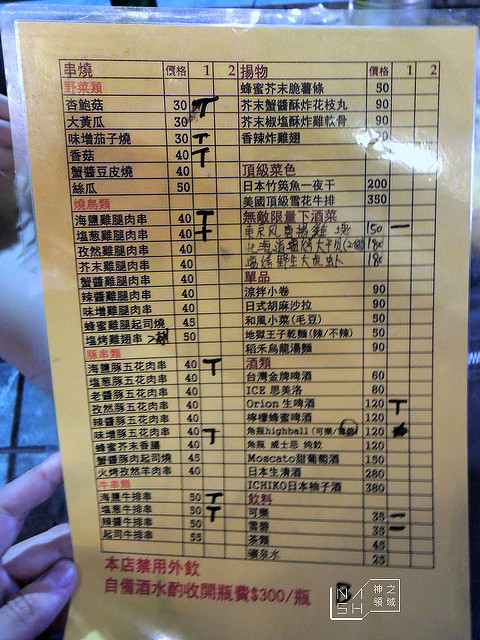 串燒 價格 1 2
野菜類
杏鮑菇 30
大黃瓜 30
味增茄子燒 30
香菇 40
蟹醬豆皮燒 40
絲瓜 50
燒鳥類
海鹽雞腿肉串 40
塩葱雞腿肉串 40
孜然雞腿肉串 40
芥末雞腿肉串 40
蟹醬雞腿肉串 40
辣醬雞腿肉串 40
味增雞腿肉串 40
蜂蜜雞腿起司燒 45
塩烤雞翅串 50
豚串類
海鹽豚五花肉串 40
塩葱豚五花肉串 40
老醬豚五花肉串 40
孜然豚五花肉串 40
辣醬豚五花肉串 40
味增豚五花肉串 40
蜂蜜芥末香腸 40
蟹醬豚肉起司燒 45
火烤孜然羊肉串 40
牛串類
海鹽牛排串 50
塩葱牛排串 50
辣醬牛排串 50
起司牛排串 55
揚物 價格 1 2
蜂蜜芥末脆薯條 50
芥末蟹醬酥炸花枝丸 90
芥末椒塩酥炸雞軟骨 90
香辣炸雞翅
頂級菜色
日本竹筴魚一夜干 200
美國頂級雪花牛排 350
無敵限量下酒菜
150
180
180
單品
涼拌小卷 90
日式胡麻沙拉 90
和風小菜(毛豆) 50
地獄王子乾麵(辣/不辣) 50
稻禾烏龍湯麵 90
酒類
台灣金牌啤酒 60
ICE 思美洛 80
Orion 生啤酒 120
檸檬蜂蜜啤酒 120
角瓶highball(可樂/雪碧) 120
角瓶 威士忌 純飲 120
Moscato甜葡萄酒 150
日本生清酒 280
ICHIKO日本柚子酒 380
飲料
可樂 35
雪碧 35
茶類 45
礦泉水 25
本店禁用外飲
自備酒水酌收開瓶費$300/瓶
B
NM
SH
神之
領域